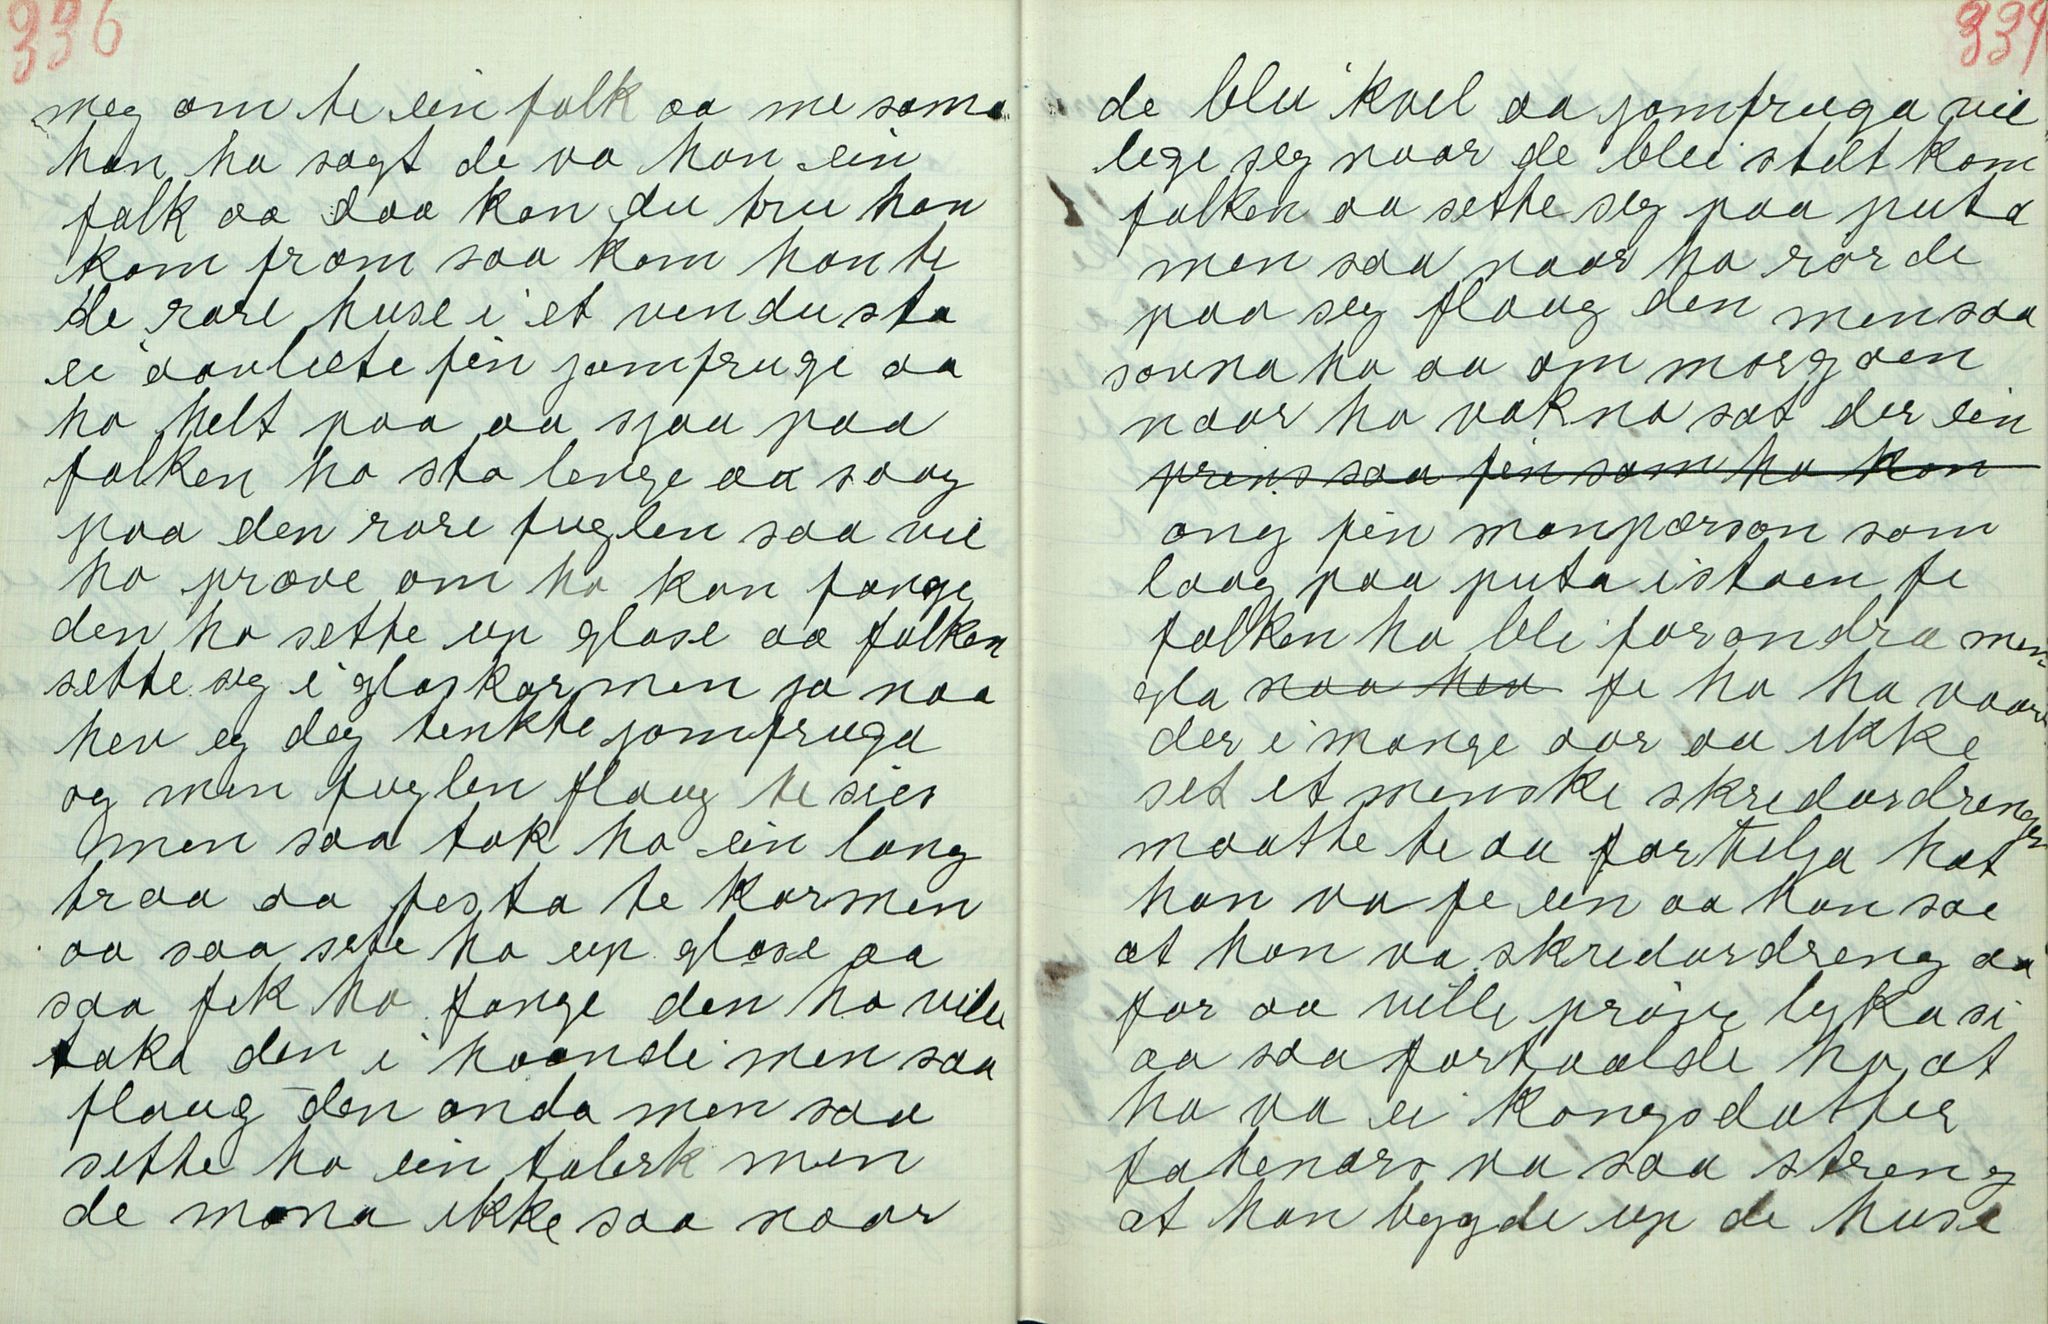 336
meg om te ein falk aa me same
han ha sagt de va han ein
falk aa daa kan du tru han
kom fram saa kom han te
de rare huse i et vindu sto
ei aavlette fin jomfruge aa
ho helt paa aa sjaa paa
falken ho sto lenge aa saag
paa den rare fuglen saa vil
ho prøve om ho kan fange
den ho sette up glase aa falken
sette seg i glaskarmen ja naa
hev eg deg tenkte jomfruga
og men fuglen flaug te sies
men saa tok ho ein lang
traa aa festa te karmen
aa saa sete ho up glase aa
saa fek ho fange den ho ville
taka den i haande men saa
flaug den onda men saa
sette ho ein talerk men
de mona ikke saa naar
337
de blei kvel aa jomfruga vil
lege seg naar de blei stilt kom
falken aa sette seg paa puta
men saa naar ho rørde
paa seg flaug den men saa
sovna ho aa om morgaen
naar ho vakna sat der ein
prins saa fin som ho kan
ong fin manpærson som
laag paa puta istaen fe
falken ho blei forandra men
gla naa hev fe ho ha vaare
der i mange aar aa ikke
set et menske skredardrengen
maatte te aa fortelja hot
han va fe ein aa han sae
at han va skredardreng aa
for aa ville prøve lykka si
aa saa fortaalde ho at
ho va ei kongsdatter
fa henars va saa streng
at han bygde up de huse